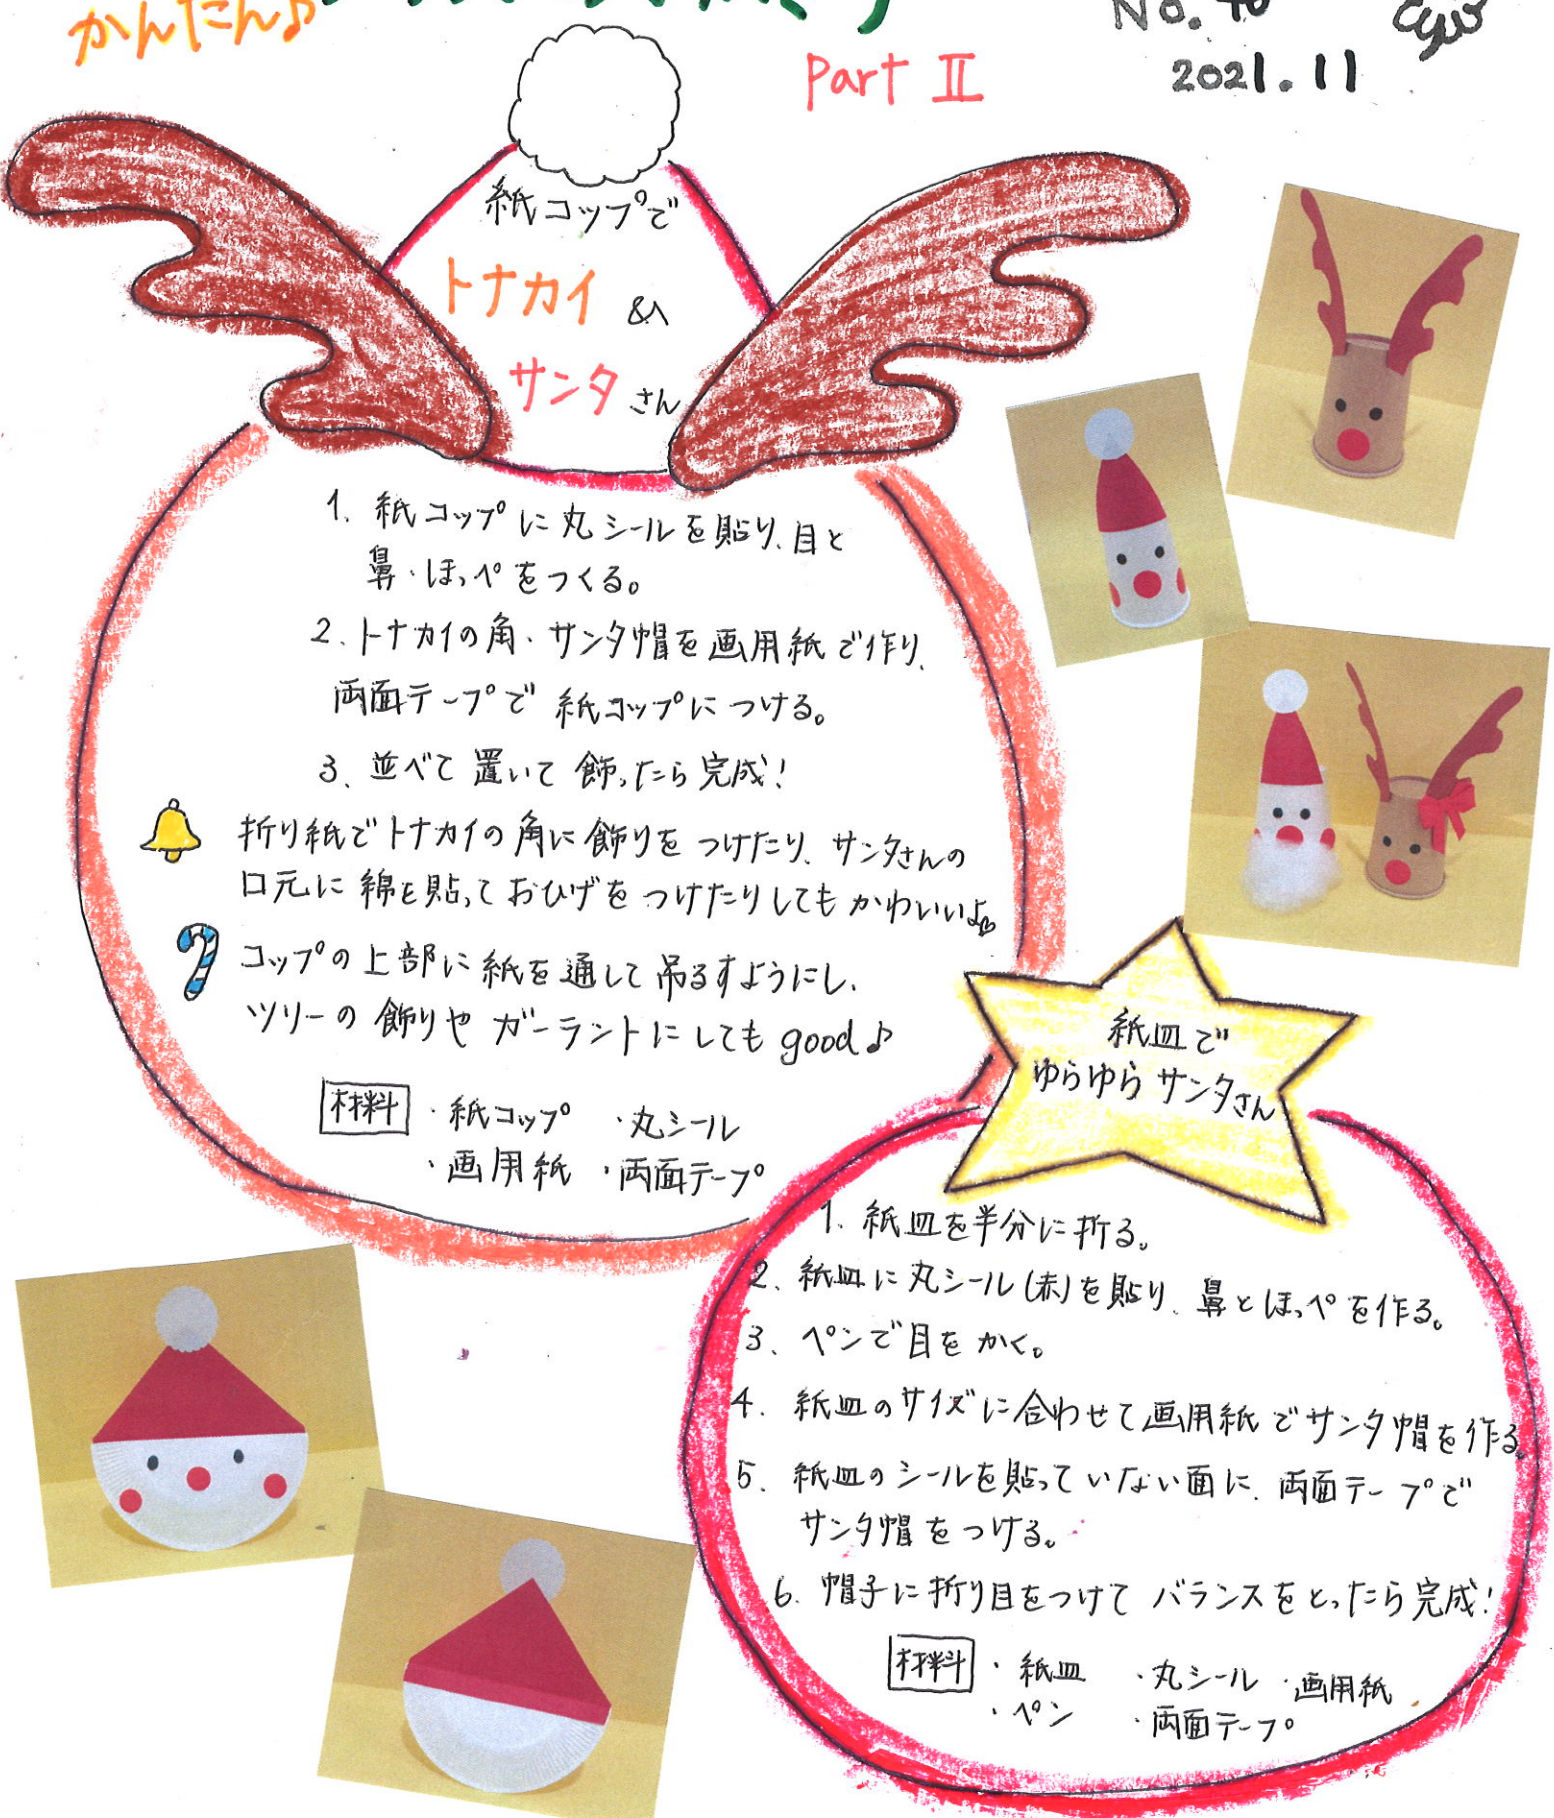 かんたん♪
No.
Part Ⅱ
2021.11
紙コップで
トナカイ &
サンタさん
1. 紙コップに丸シールを貼り、目と
鼻・ほっぺをつくる。
2. トナカイの角・サンタ帽を画用紙で作り、
両面テープで 紙コップにつける。
3、並べて置いて飾ったら完成!
折り紙でトナカイの角に飾りをつけたり、サンタさんの
口元に綿を貼っておひげをつけたりしてもかわいいよ
コップの上部に紙を通して吊るすようにし、
ツリーの飾りやガーラントにしてもgood♪
材料 ・紙コップ ・丸シール
・画用紙 ・両面テープ
紙皿で
ゆらゆらサンタさん
1. 紙皿を半分に折る。
2、紙皿に丸シール(赤)を貼り、鼻とほっぺを作る。
3、ペンで目をかく。
4. 紙皿のサイズに合わせて画用紙でサンタ帽を作る。
5. 紙皿のシールを貼っていない面に、両面テープで
サンタ帽をつける。
6. 帽子に折り目をつけてバランスをとったら完成!
材料 ・紙皿 ・丸シール ・画用紙
・ペン ・両面テープ